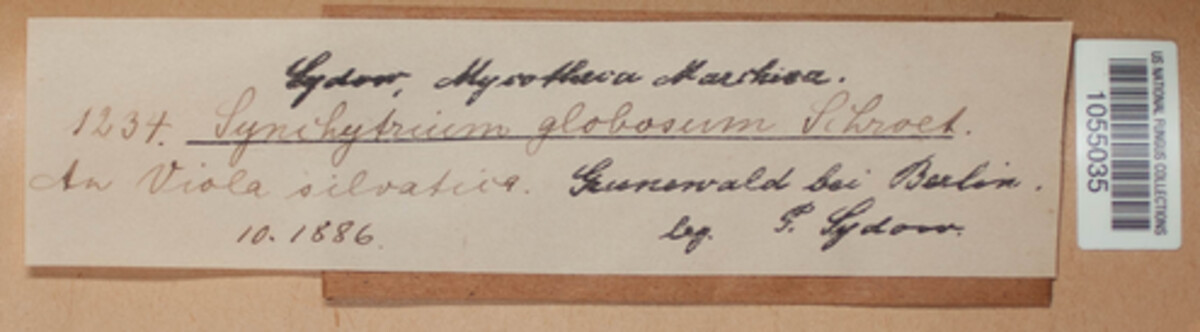 Sydow, Mycotheca Marchica.
1234. Synchytrium globosum Schroet.
An Viola silvatica. Grunewald bei Berlin.
10. 1886. leg. P. Sydow.
US NATIONAL FUNGUS COLLECTIONS
1055035